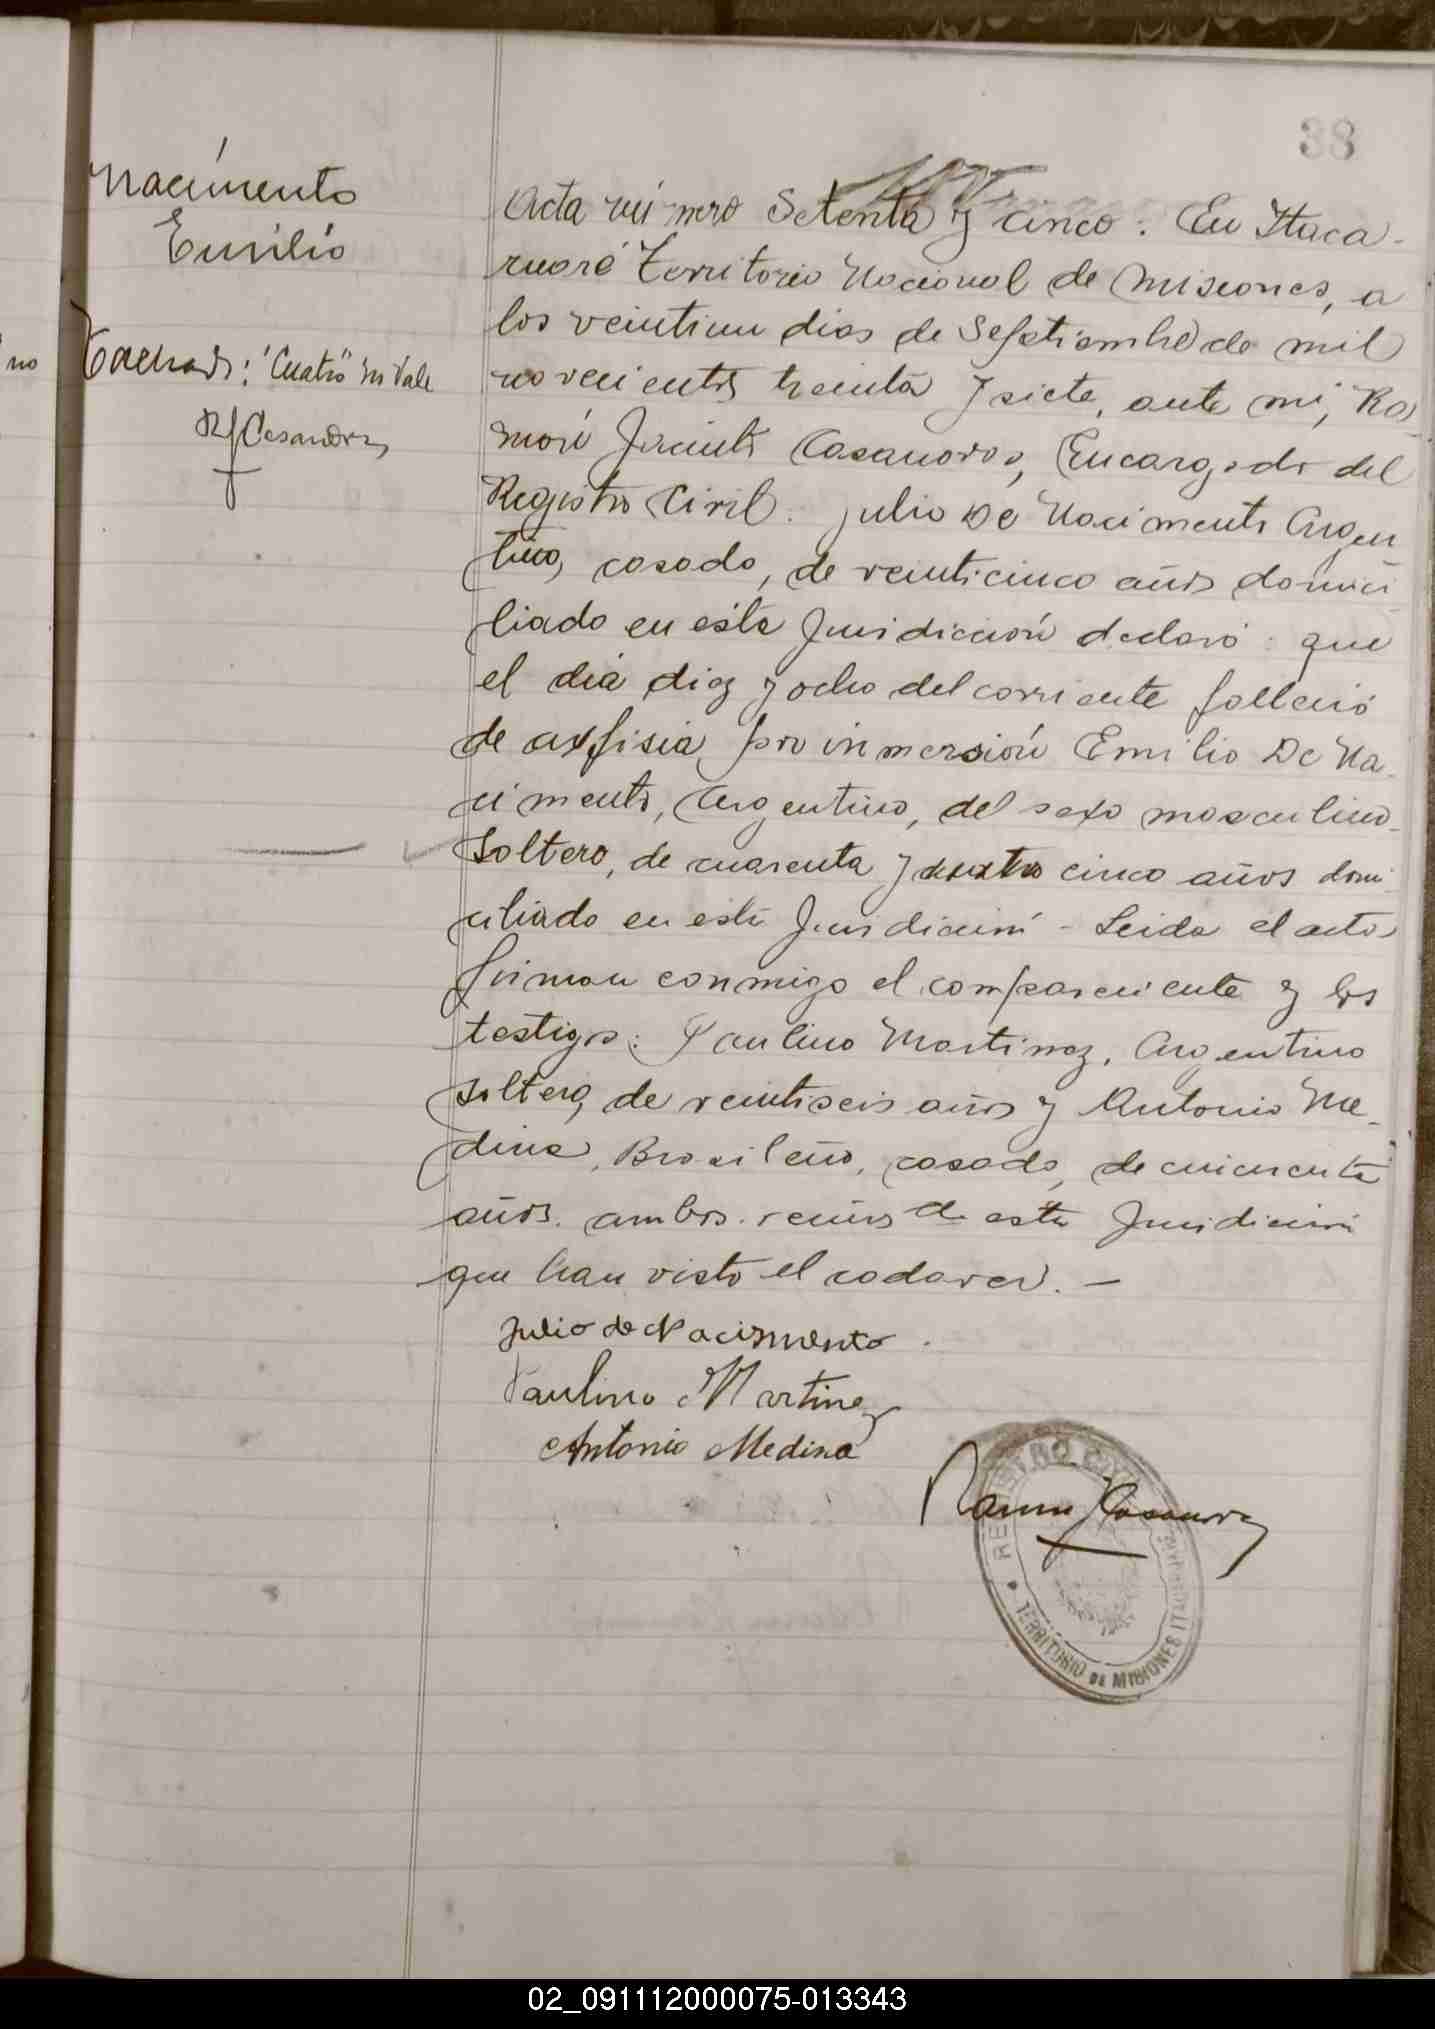 38
Nacimento
Emilio
Tachado: "Cuatro" no Vale
RJCasanova
no
Acta número Setenta y cinco: En Itaca-
ruaré Territorio Nacional de Misiones, a
los veintiun dias de Septiembre de mil
novecientos treinta y siete, ante mi, Ra
món Jacinto Casanova, Encargado del
Registro Civil. Julio De Nacimento Argen
tino, casado, de veinticinco años domici
liado en esta Jurisdicción declaró: que
el dia diez y ocho del corriente falleció
de axfisia por inmersión Emilio De Na-
cimento, Argentino, del sexo masculino
soltero, de cuarenta y cuatro cinco años domi
ciliado en esta Jurisdicción - Leida el acta
firman conmigo el compareciente y los
testigos: Paulino Martinez, Argentino
soltero, de veintiseis años y Antonio Me-
dina, Brasileño, casado, de cincuenta
años. ambos vecinos de esta Jurisdicción
que han visto el cadaver. -
Julio de Nacismento.
Paulino Martinez
Antonio Medina
Ramon J Casanova
REGISTRO CIVIL
TERRITORIO DE MISIONES
02_091112000075-013343